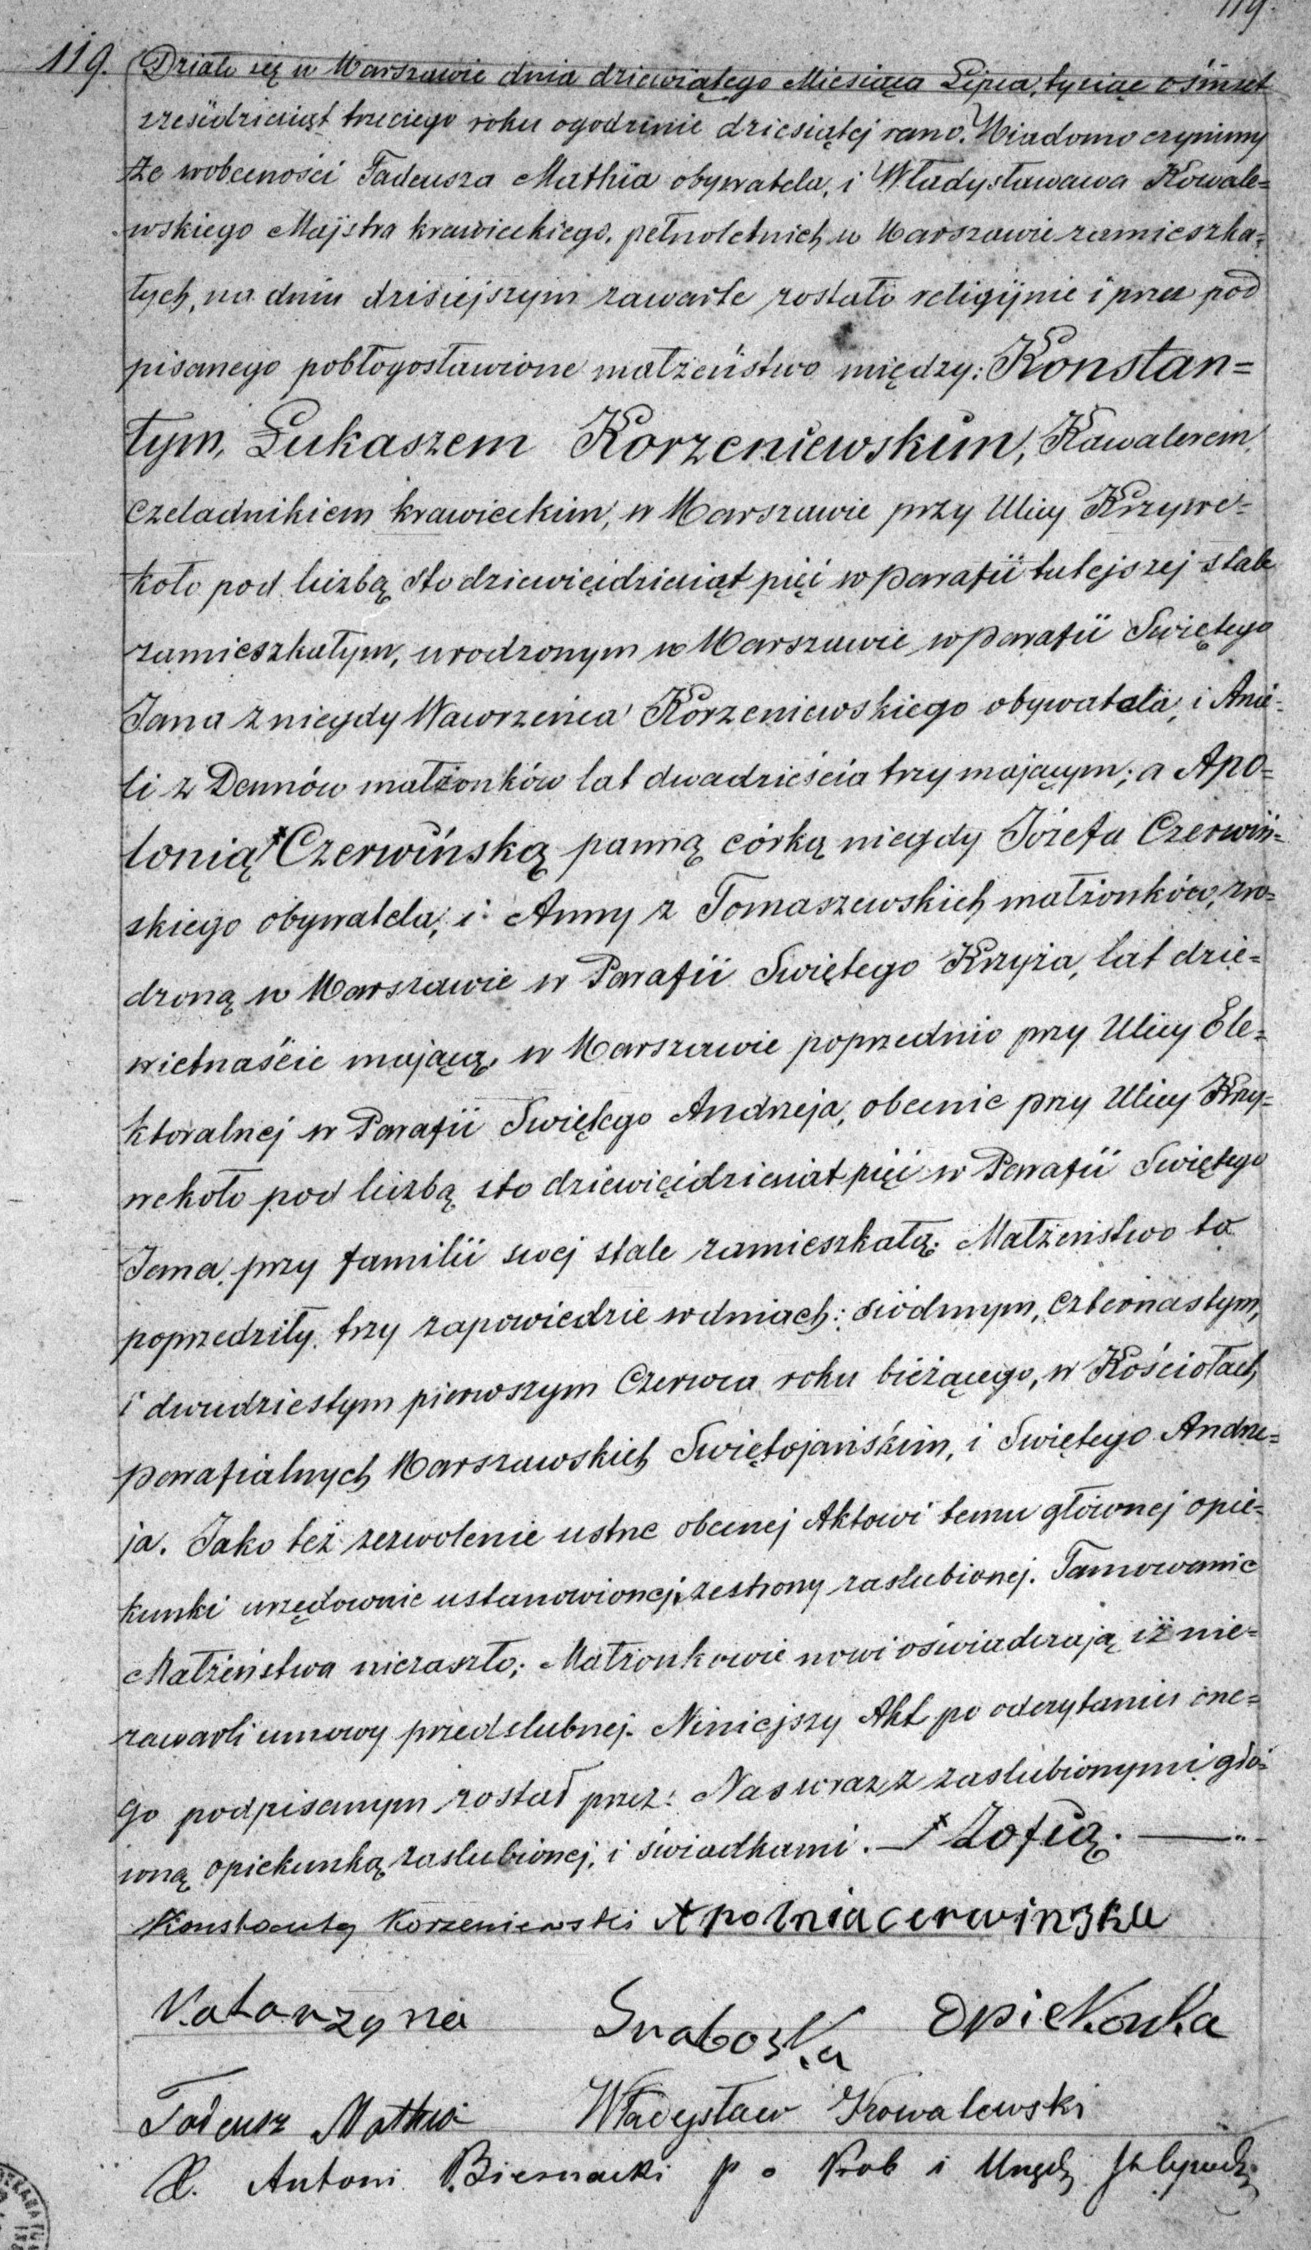 119.
119. Działo się w Warszawie dnia dziewiątego Miesiąca Lipca, tysiąc ośmset
sześćdziesiąt trzeciego roku o godzinie dziesiątej rano. Wiadomo czynimy
że w obecności Tadeusza Mathia obywatela, i Władysławawa Kowale=
wskiego Majstra krawieckiego, pełnoletnich w Warszawie zamieszka=
łych, na dniu dzisiejszym zawarte zostało religijnie i przez pod
pisanego pobłogosławione małżeństwo między: Konstan=
tym, Łukaszem Korzeniewskim, Kawalerem,
czeladnikiem krawieckim, w Warszawie przy Ulicy Krzywe=
koło pod liczbą sto dziewięćdziesiąt pięć w parafii tutejszej stale
zamieszkałym, urodzonym w Warszawie w parafii Swiętego
Jana z niegdy Wawrzeńca Korzeniewskiego obywatela, i Anie=
li z Dennów małżonków lat dwadzieścia trzy mającym; a Apo=
lonią Czerwińską panną córką niegdy Józefa Czerwiń=
skiego obywatela, i Anny z Tomaszewskich małżonków, uro=
dzoną w Warszawie w Parafii Swiętego Krzyża, lat dzie=
więtnaście mającą, w Warszawie poprzednio przy Ulicy Ele=
ktoralnej w Parafii Swiętego Andrzeja, obecnie przy Ulicy Krzy=
wekoło pod liczbą sto dziewięćdziesiąt pięć w Parafii Swiętego
Jana, przy familii swej stale zamieszkałą. Małżeństwo to
poprzedziły trzy zapowiedzie w dniach: siódmym, czternastym,
i dwudziestym pierwszym Czerwca roku bieżącego, w Kościołach
parafialnych Warszawskich Swiętojańskim, i Swiętego Andrze=
ja. Jako też zezwolenie ustne obecnej Aktowi temu głównej opie=
kunki urzędownie ustanowionej, ze strony zaslubionej. Tamowanie
Małżeństwa niezaszło; Małżonkowie nowi oświadczają iż nie=
zawarli umowy przedslubnej. Niniejszy Akt po odczytaniu one=
go podpisanym został przez: Nas wraz z zaslubionymi głó=
wną opiekunką zaslubionej, i świadkami. — Zofią. —
Konstanty Korzeniewski Apolnia cerwinska
Katarzyna Opiekonka
Tadeusz Mathia Władysław Kowalewski
X. Antoni Biernacki p o Prob i